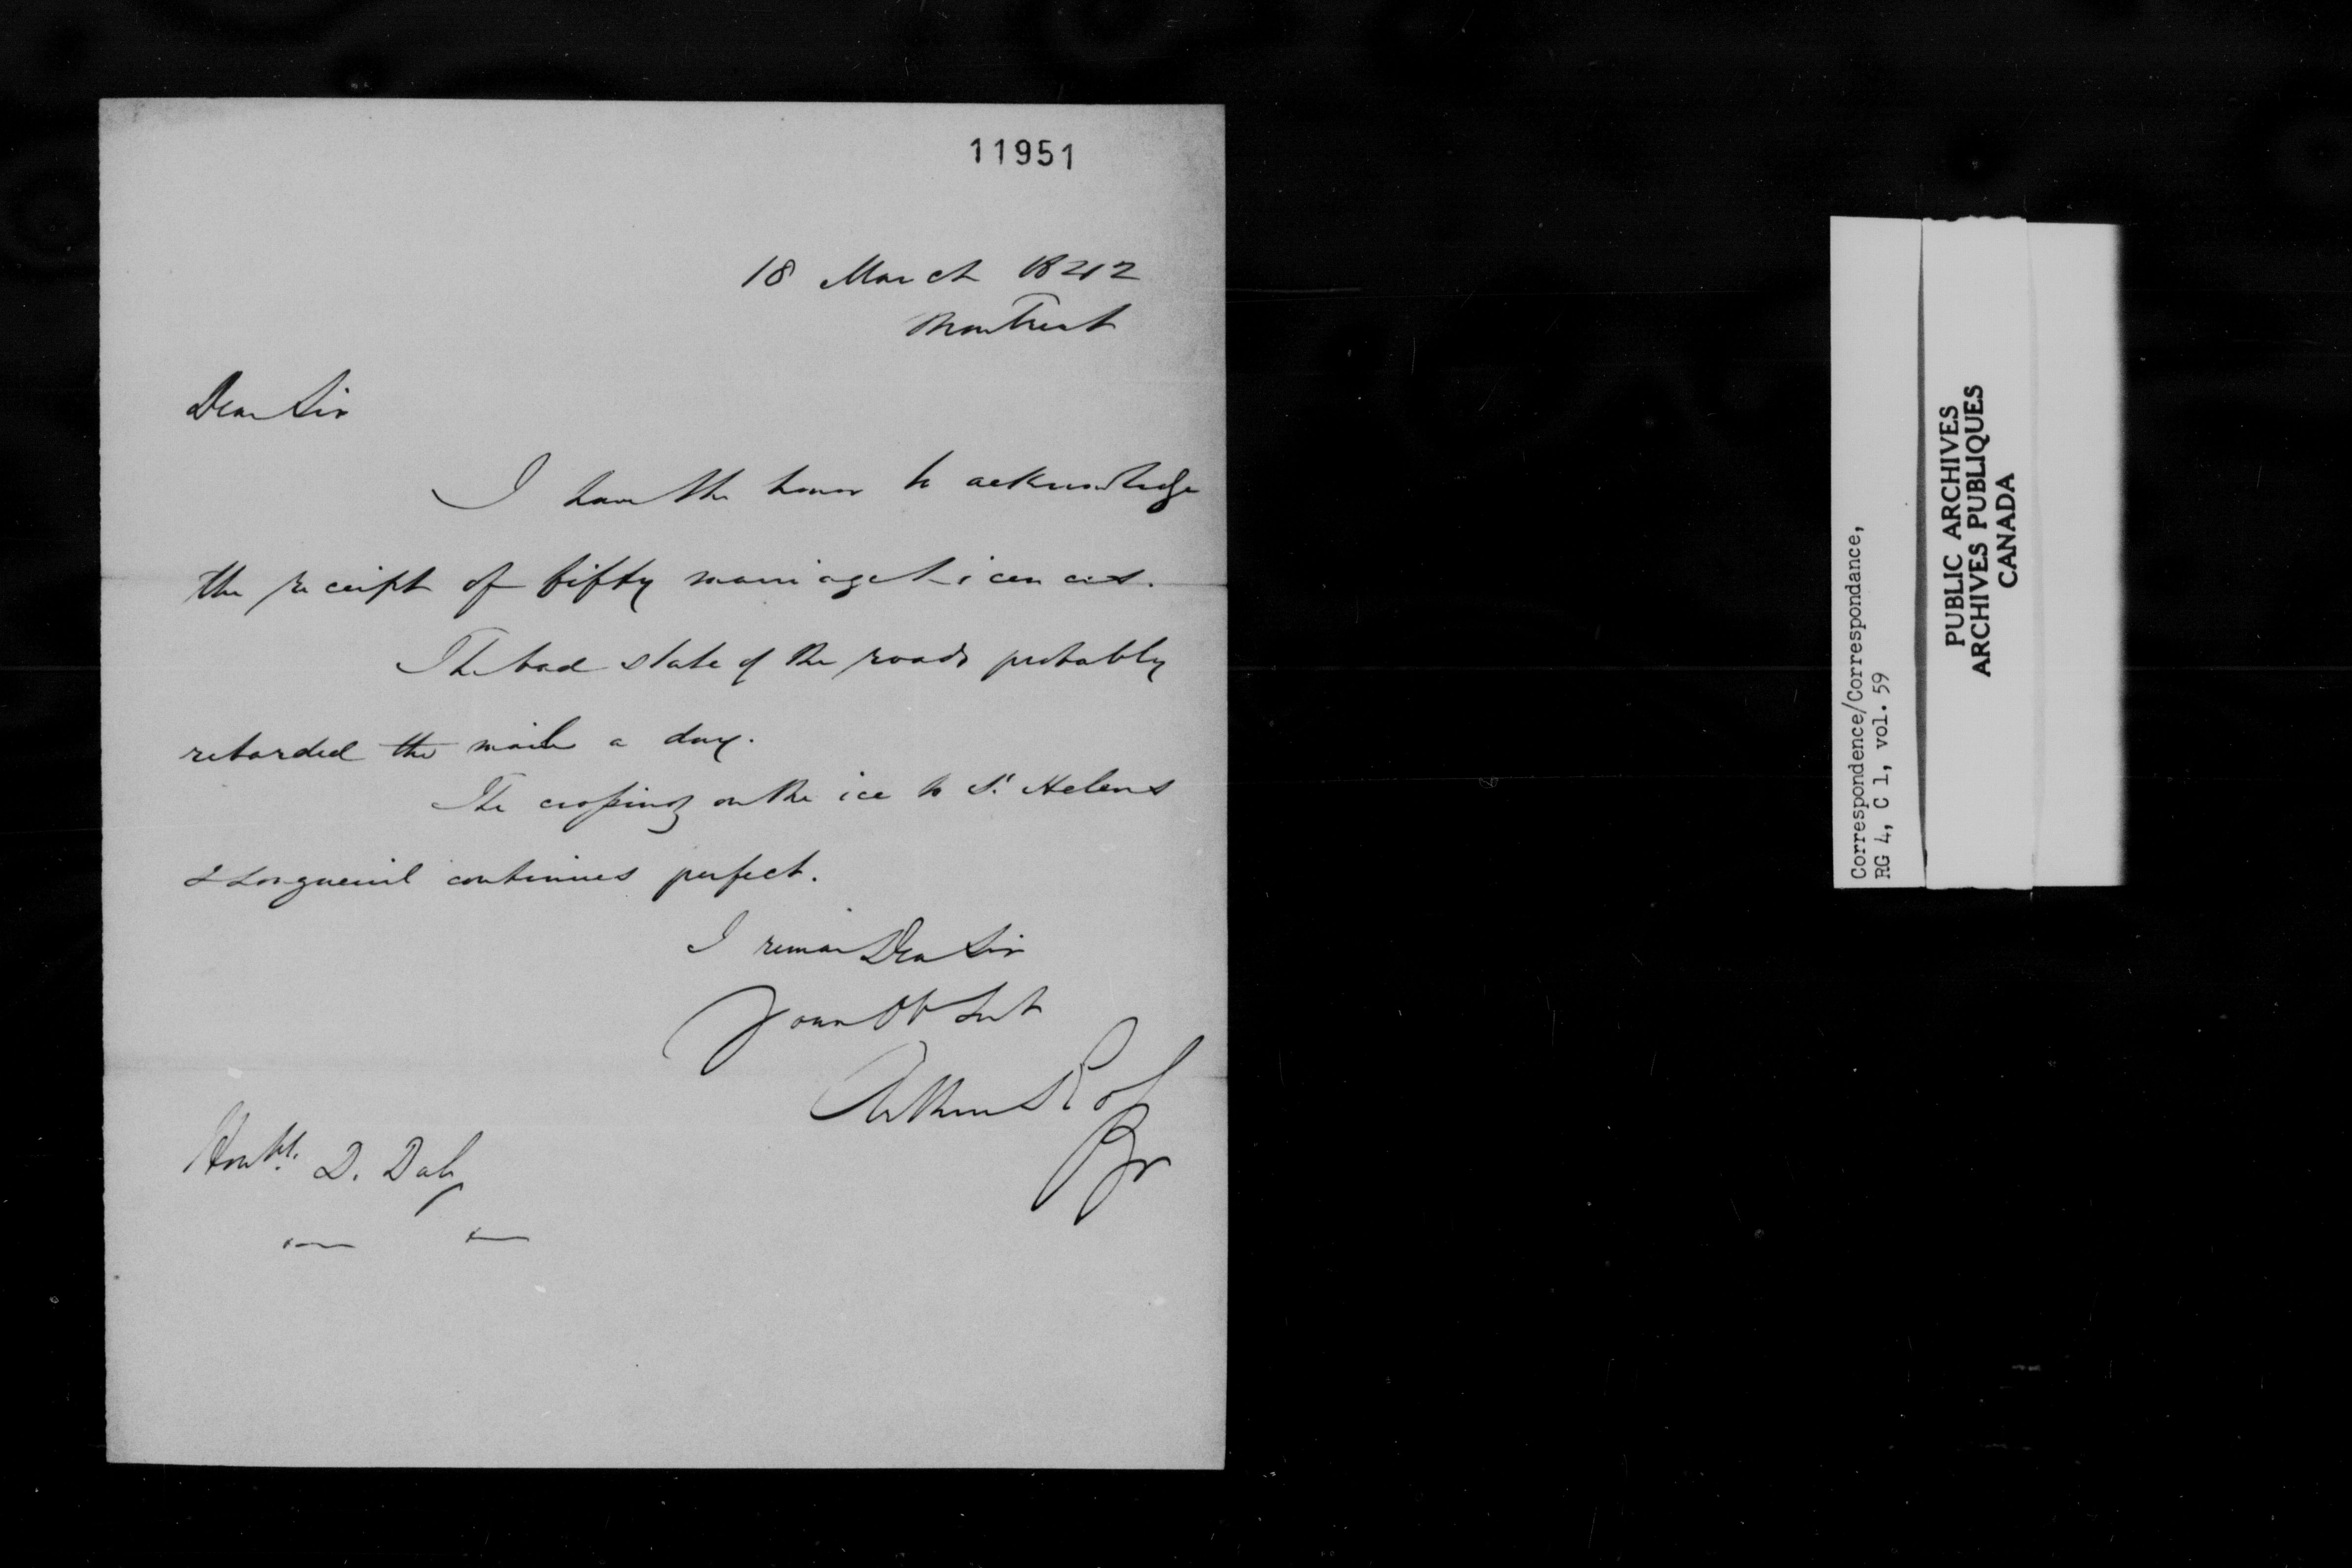 11951
18 March 1842
Montreal
Dear Sir
I have the honor to acknowledge
the receipt of fifty marriage Licences.
The bad state of the roads probably
retarded the mails a day.
The crossing on the ice to St. Helens
& Longueuil continues perfect.
I remain Dear Sir
Your Ob Svt
Arthur Ross
Honble. D. Daly
Correspondence/Correspondance,
RG 4, C 1, vol. 59
PUBLIC ARCHIVES
ARCHIVES PUBLIQUES
CANADA